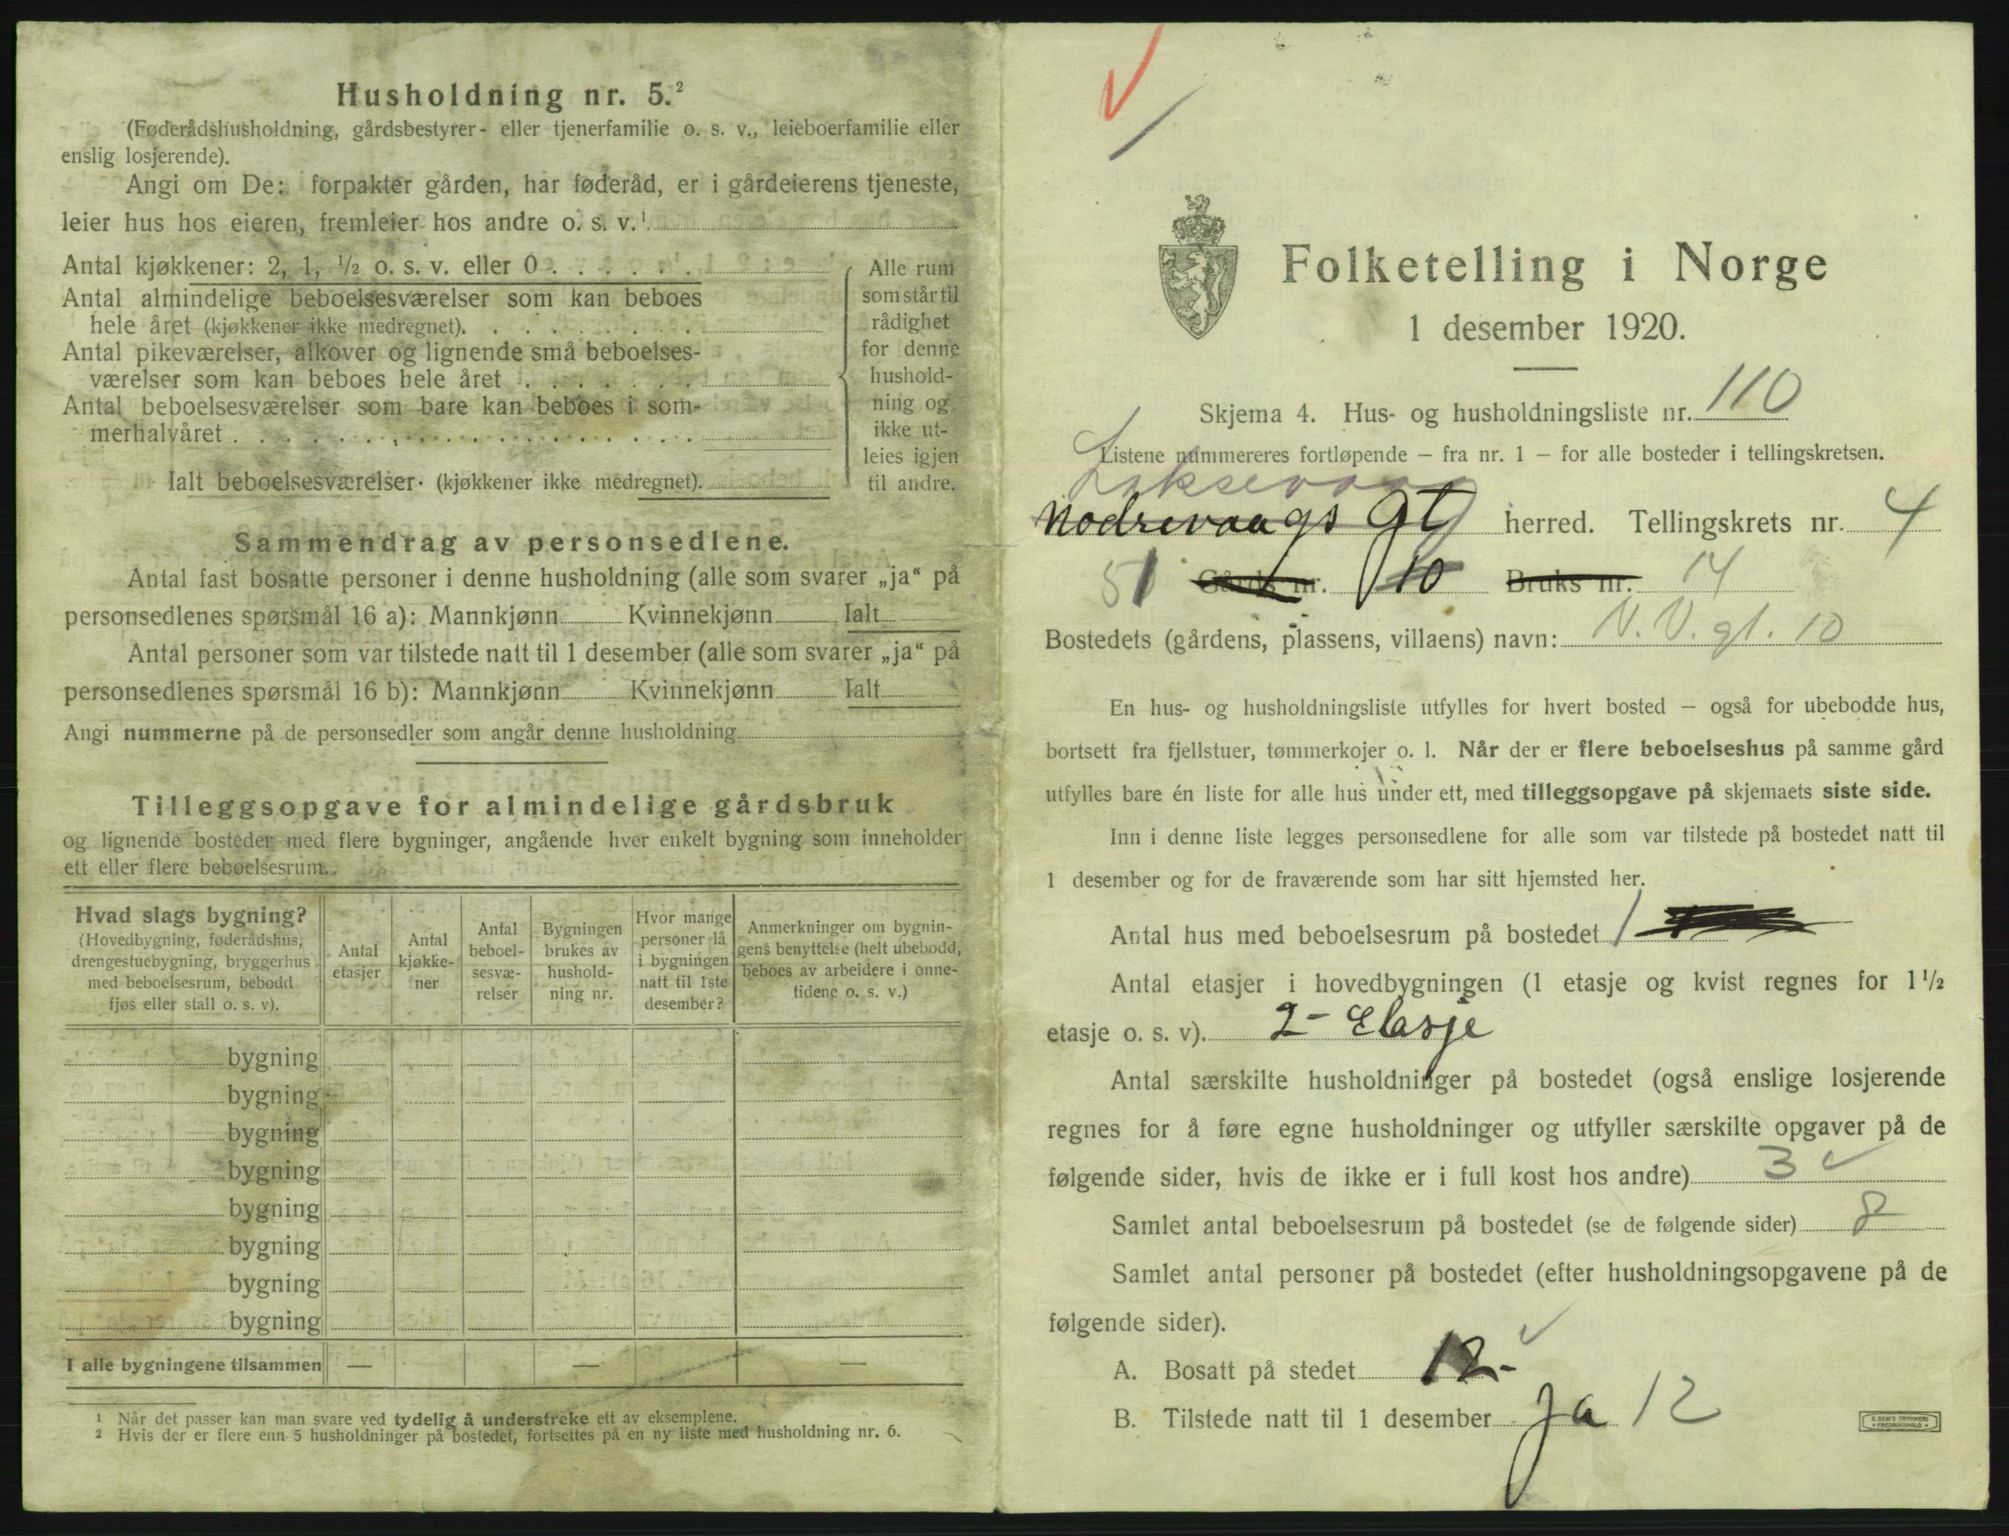 Husholdning nr. 5.²
(Føderådshusholdning, gårdsbestyrer- eller tjenerfamilie o. s. v., leieboerfamilie eller
enslig losjerende).
Angi om De: forpakter gården, har føderåd, er i gårdeierens tjeneste,
leier hus hos eieren, fremleier hos andre o. s. v.¹
Antal kjøkkener: 2, 1, ½ o. s. v. eller 0
Antal almindelige beboelsesværelser som kan beboes
hele året (kjøkkener ikke medregnet).
Antal pikeværelser, alkover og lignende små beboelses-
værelser som kan beboes hele året
Antal beboelsesværelser som bare kan beboes i som-
merhalvåret
Ialt beboelsesværelser (kjøkkener ikke medregnet).
Alle rum
som står til
rådighet
for denne
hushold-
ning og
ikke ut-
leies igjen
til andre.
Sammendrag av personsedlene.
Antal fast bosatte personer i denne husholdning (alle som svarer „ja“ på
personsedlenes spørsmål 16 a): Mannkjønn Kvinnekjønn Ialt
Antal personer som var tilstede natt til 1 desember (alle som svarer „ja“ på
personsedlenes spørsmål 16 b): Mannkjønn Kvinnekjønn Ialt
Angi nummerne på de personsedler som angår denne husholdning
Tilleggsopgave for almindelige gårdsbruk
og lignende bosteder med flere bygninger, angående hver enkelt bygning som inneholder
ett eller flere beboelsesrum.
Hvad slags bygning?
(Hovedbygning, føderådshus,
drengestuebygning, bryggerhus
med beboelsesrum, bebodd
fjøs eller stall o. s. v).
Antal
etasjer
Antal
kjøkke-
ner
Antal
beboel-
sesvæ-
relser
Bygningen
brukes av
hushold-
ning nr.
Hvor mange
personer lå
i bygningen
natt til 1ste
desember?
Anmerkninger om bygnin-
gens benyttelse (helt ubebodd,
beboes av arbeidere i onne-
tidene o. s. v.)
bygning
bygning
bygning
bygning
bygning
bygning
bygning
bygning
I alle bygningene tilsammen — — —
¹ Når det passer kan man svare ved tydelig å understreke ett av eksemplene.
² Hvis der er flere enn 5 husholdninger på bostedet, fortsettes på en ny liste med husholdning nr. 6.
Folketelling i Norge
1 desember 1920.
Skjema 4. Hus- og husholdningsliste nr. 110
Listene nummereres fortløpende – fra nr. 1 – for alle bosteder i tellingskretsen.
Laksevaag
Nodrevaags gt herred. Tellingskrets nr. 4
51 Gårds nr. 10 Bruks nr. 14
Bostedets (gårdens, plassens, villaens) navn: N. V. gt. 10
En hus- og husholdningsliste utfylles for hvert bosted – også for ubebodde hus,
bortsett fra fjellstuer, tømmerkojer o. l. Når der er flere beboelseshus på samme gård
utfylles bare én liste for alle hus under ett, med tilleggsopgave på skjemaets siste side.
Inn i denne liste legges personsedlene for alle som var tilstede på bostedet natt til
1 desember og for de fraværende som har sitt hjemsted her.
Antal hus med beboelsesrum på bostedet 1
Antal etasjer i hovedbygningen (1 etasje og kvist regnes for 1½
etasje o. s. v). 2- Etasje
Antal særskilte husholdninger på bostedet (også enslige losjerende
regnes for å føre egne husholdninger og utfyller særskilte opgaver på de
følgende sider, hvis de ikke er i full kost hos andre) 3
Samlet antal beboelsesrum på bostedet (se de følgende sider) 8
Samlet antal personer på bostedet (efter husholdningsopgavene på de
følgende sider).
A. Bosatt på stedet 12-
B. Tilstede natt til 1 desember ja 12
E. SEM'S TRYKKERI
FREDRIKSHALD